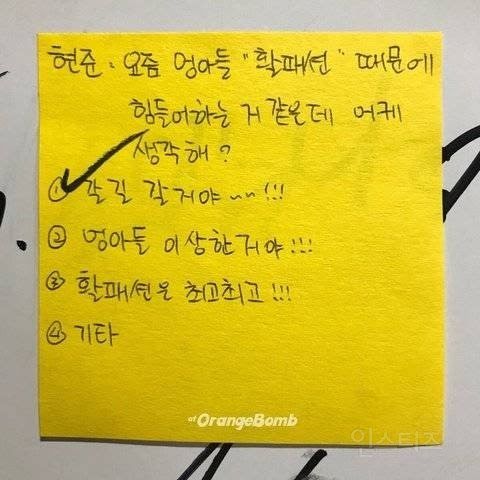 현준 : 요즘 엉아들 "활패션" 때문에
힘들어하는 거 같은데 어케
생각해?
① 갈길 갈거야~~!!!
② 엉아들 이상한거야!!!
③ 활패션은 최고최고!!!
④ 기타
OrangeBomb
인스티즈